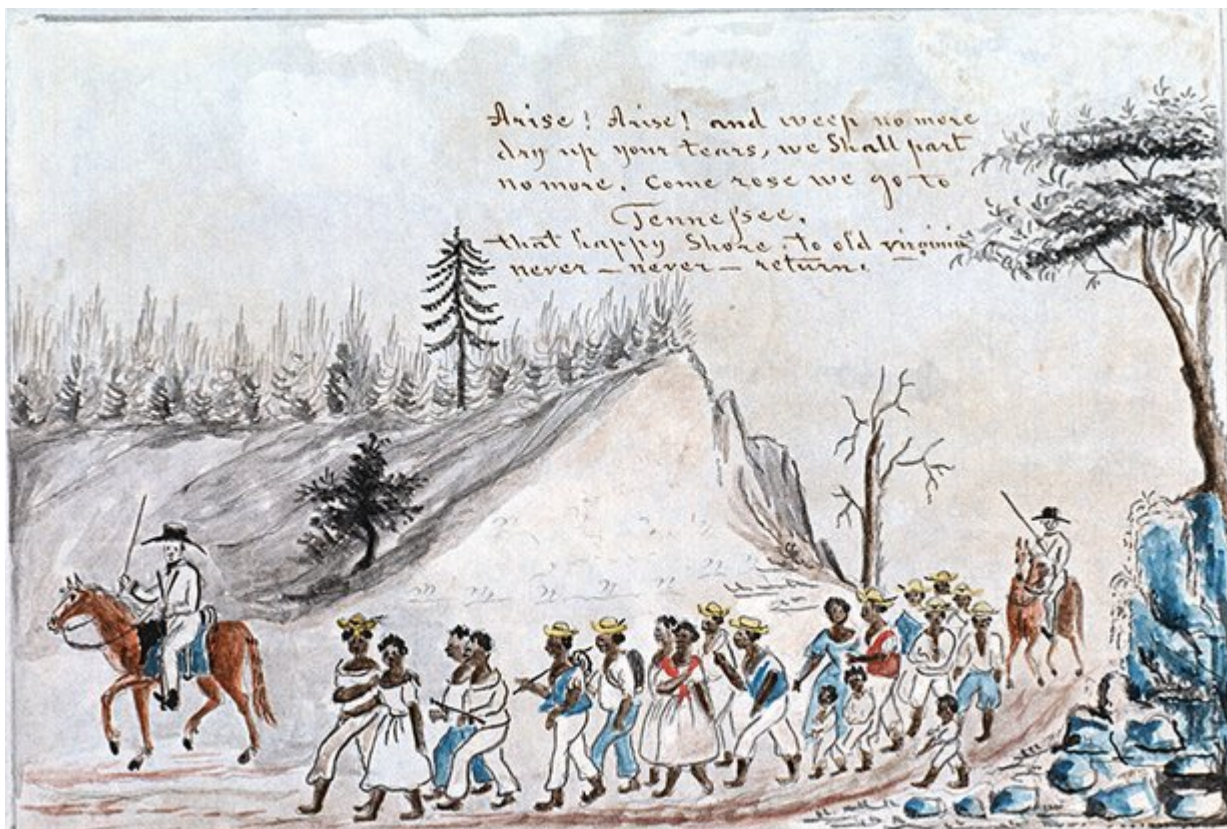 Arise! Arise! and weep no more
dry up your tears, we Shall part
no more. Come rose we go to
Tenneſsee,
that happy Shore, to old virginia
never – never – return.